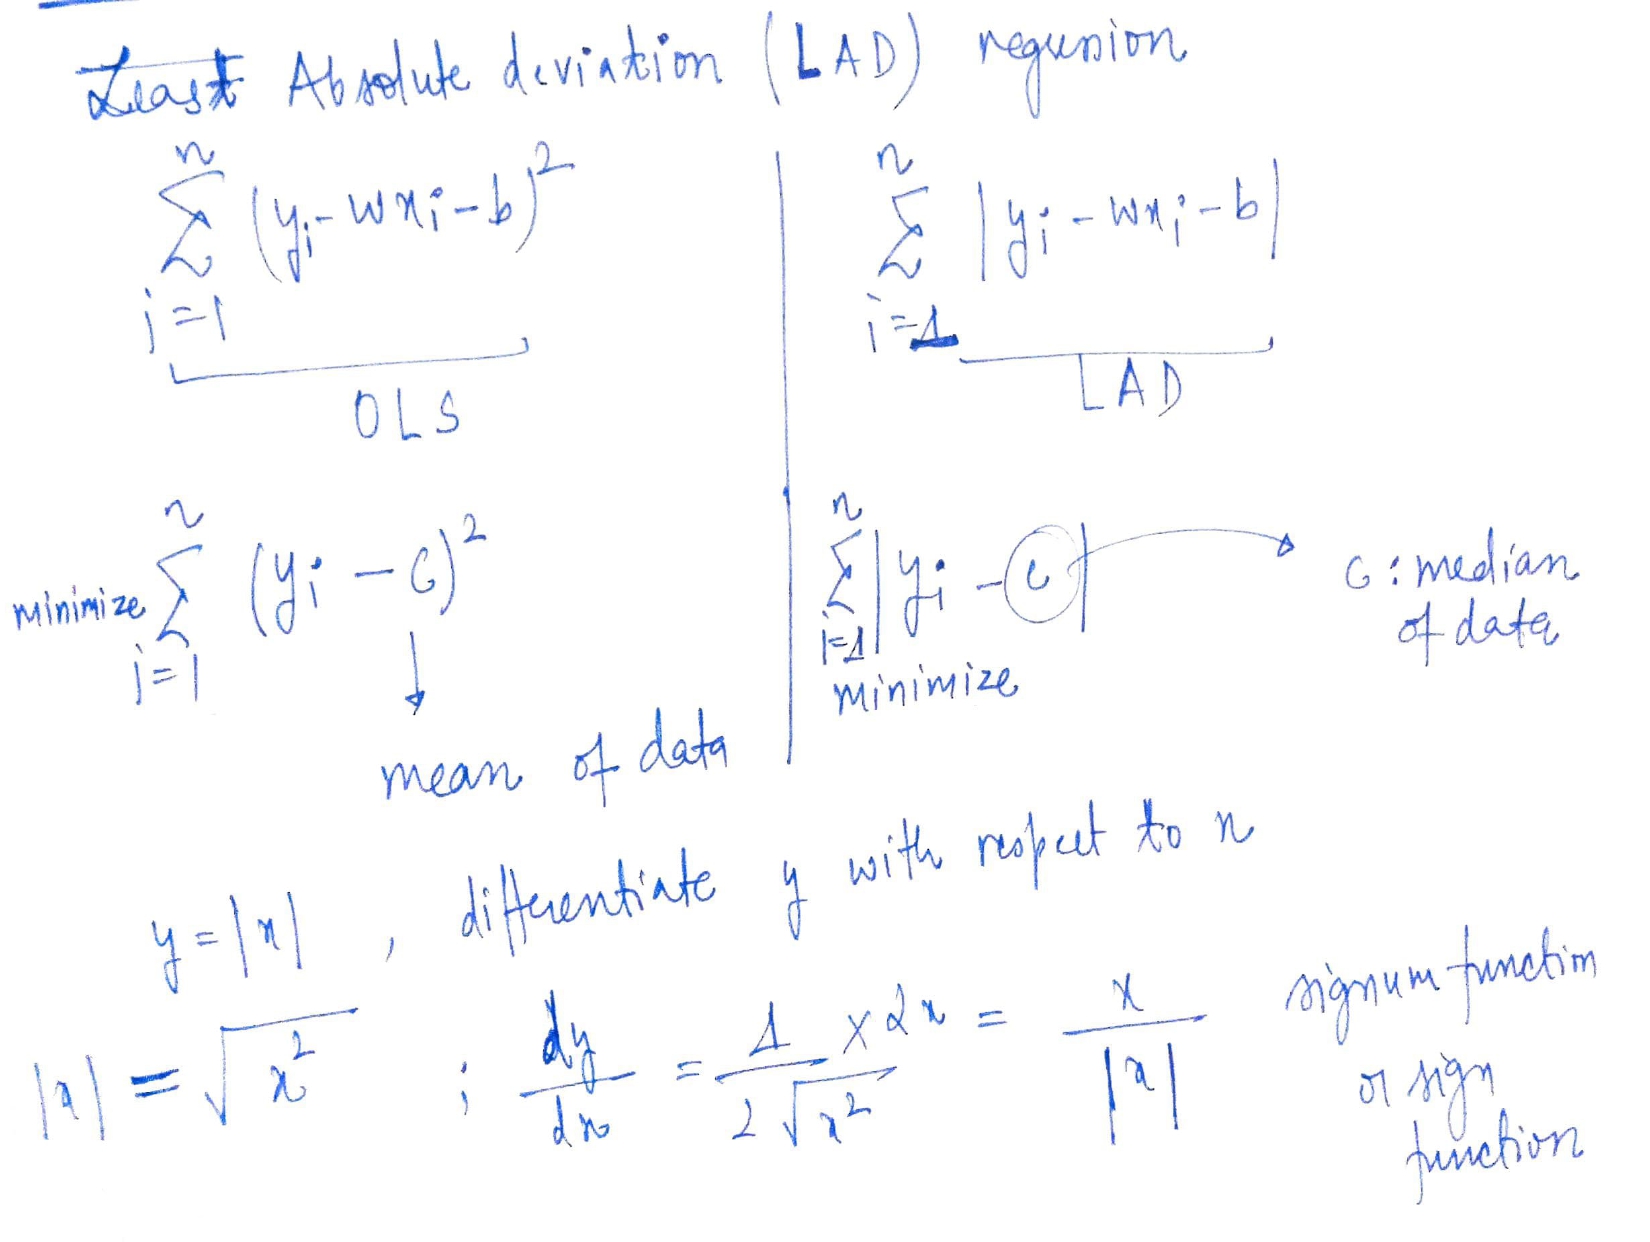 Least Absolute deviation (LAD) regression
n
∑ (yi - wxi - b)²
i=1
OLS
n
∑ |yi - wxi - b|
i=1
LAD
n
minimize ∑ (yi - c)²
i=1
mean of data
n
∑ |yi - c|
i=1
minimize
c : median
of data
y = |x| , differentiate y with respect to x
|x| = √x² ; dy/dx = 1/(2√x²) × 2x = x/|x|
signum function
or sign
function